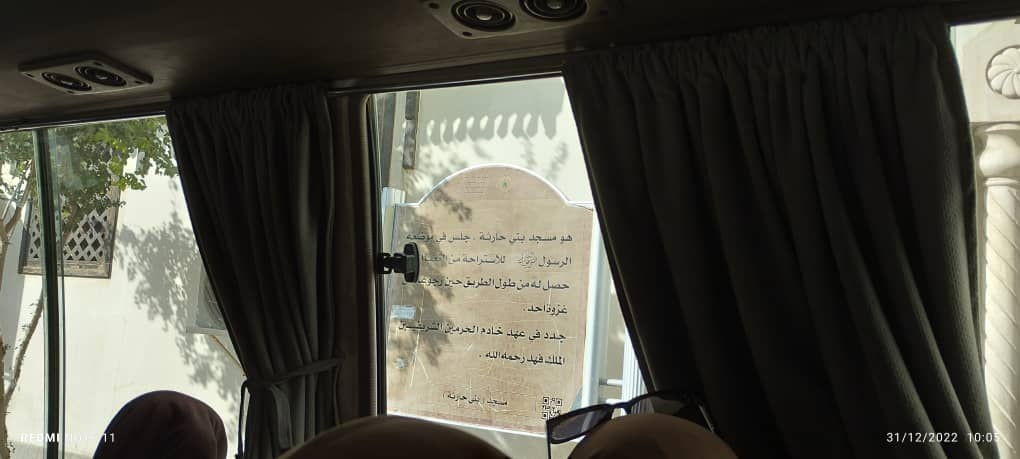 هو مسجد بني حارثة ، جلس في موضعه
الرسول ﷺ للاستراحة من
حصل له من طول الطريق حين
غزوة أحد .
جدد في عهد خادم الحرمين الشريفين
الملك فهد رحمه الله .
مسجد ( بني حارثة )
REDMI NOTE 11
31/12/2022 10:05